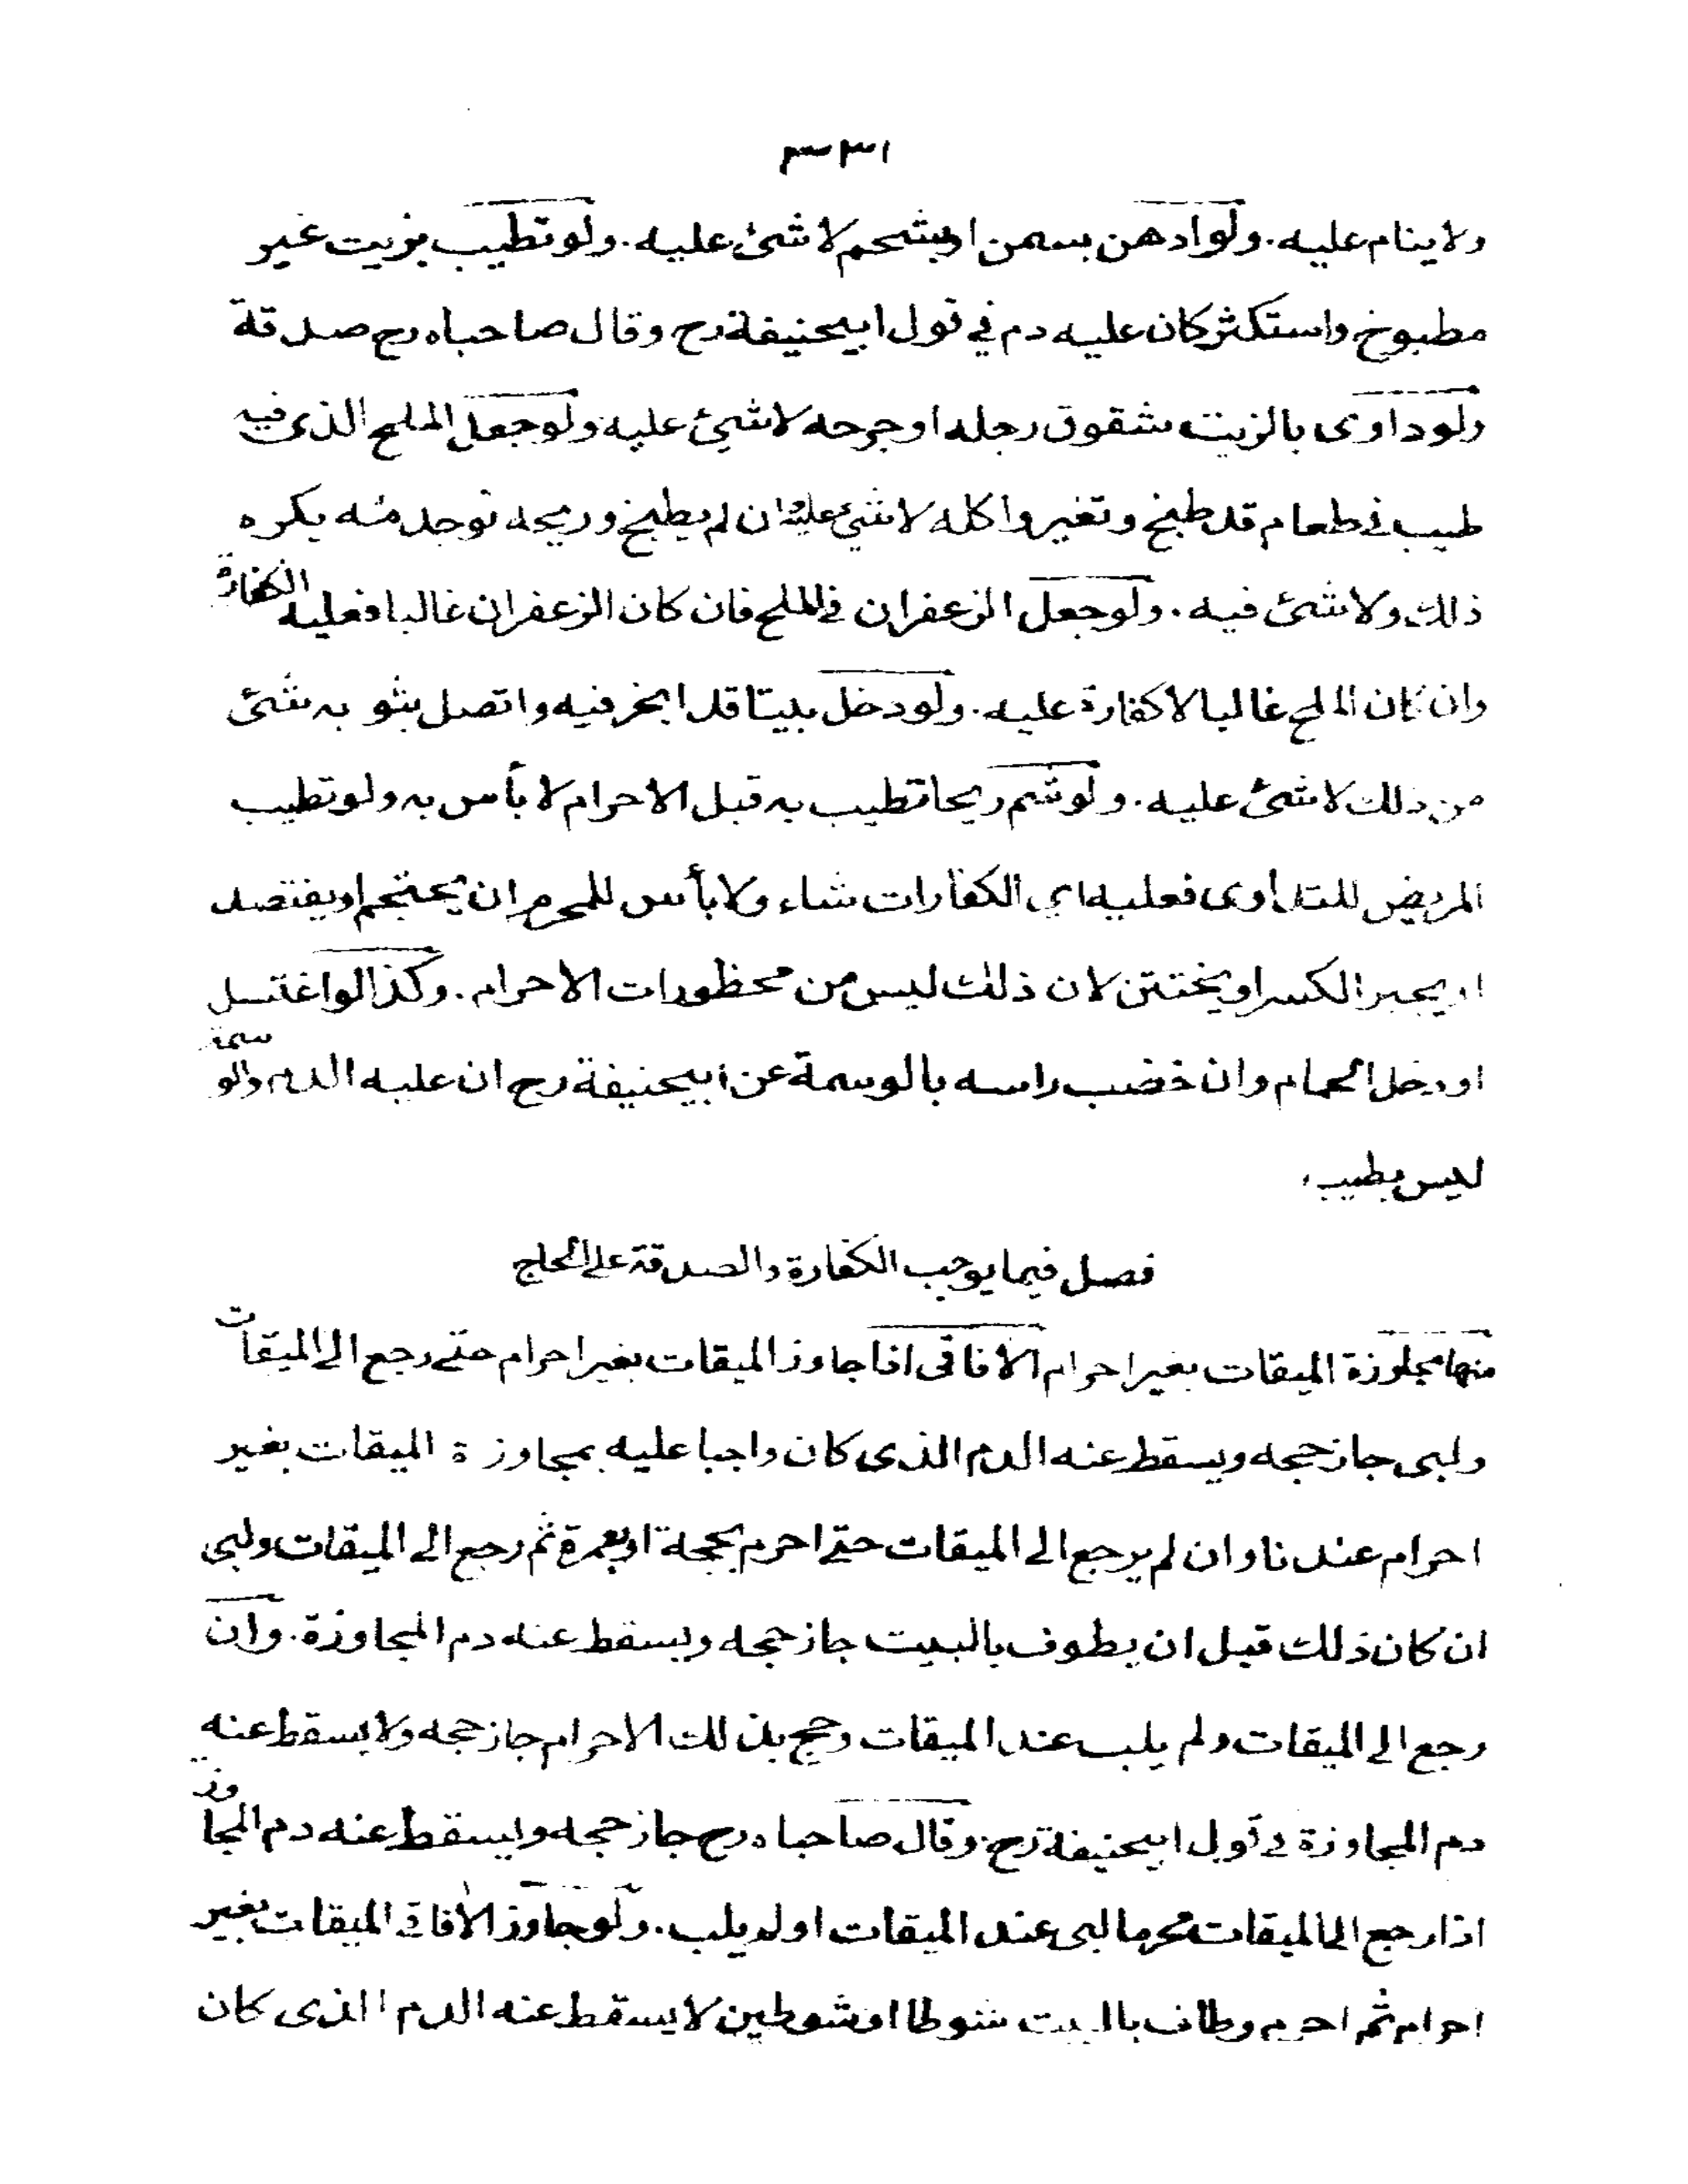 ١٣٣
ولا ينام عليه. ولو ادهن بسمن او بشحم لا شئ عليه. ولو تطيب بزيت غير
مطبوخ واستكثر كان عليه دم في قول ابيحنيفة رح وقال صاحباه رح صدقة
ولو داوى بالزيت شقوق رجله او جرحه لا شئ عليه ولو جعل الملح الذى فيه
طيب في طعام قد طبخ وتغير واكله لا شئ عليه وان لم يطبخ وريحه توجد منه يكره
ذلك ولا شئ فيه. ولو جعل الزعفران في الملح فان كان الزعفران غالبا فعليه الكفارة
وان كان الملح غالبا لا كفارة عليه. ولو دخل بيتا قد ابخر فيه واتصل بثوبه شئ
من ذلك لا شئ عليه. ولو شم ريحا تطيب به قبل الاحرام لا بأس به ولو تطيب
المريض للتداوى فعليه اي الكفارات شاء ولا بأس للمحرم ان يحتجم او يفتصد
او يجبر الكسر او يختتن لان ذلك ليس من محظورات الاحرام. وكذا لو اغتسل
او دخل الحمام وان خضب راسه بالوسمة عن ابيحنيفة رح ان عليه الدم والوسمة
ليس بطيب،
فصل فيما يوجب الكفارة والصدقة على الحاج
منها مجاوزة الميقات بغير احرام الافاقى اذا جاوز الميقات بغير احرام حتى رجع الى الميقات
ولبى جاز حجه ويسقط عنه الدم الذى كان واجبا عليه بمجاوزة الميقات بغير
احرام عندنا وان لم يرجع الى الميقات حتى احرم بحجة او بعمرة ثم رجع الى الميقات ولبى
ان كان ذلك قبل ان يطوف بالبيت جاز حجه ويسقط عنه دم المجاوزة. وان
رجع الى الميقات ولم يلب عند الميقات وحج بذلك الاحرام جاز حجه ولا يسقط عنه
دم المجاوزة في قول ابيحنيفة رح. وقال صاحباه رح جاز حجه ويسقط عنه دم المجاوزة
اذا رجع الى الميقات محرما لبى عند الميقات او لم يلب. ولو جاوز الافاقي الميقات بغير
احرام ثم احرم وطاف بالبيت شوطا او شوطين لا يسقط عنه الدم الذى كان